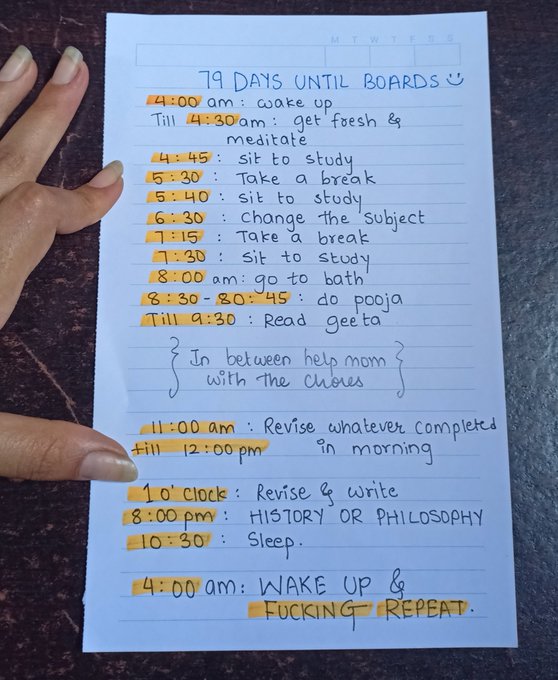 M T W T F S S
79 DAYS UNTIL BOARDS
4:00 am : wake up
Till 4:30am : get fresh &
meditate
4:45 : sit to study
5:30 : Take a break
5:40 : sit to study
6:30 : Change The subject
7:15 : Take a break
7:30 : sit to study
8:00 am : go to bath
8:30 - 80:45 : do pooja
Till 9:30 : Read geeta
{ In between help mom
with The chores }
11:00 am : Revise whatever completed
till 12:00pm in morning
1 o'clock : Revise & write
8:00 pm : HISTORY OR PHILOSOPHY
10:30 : Sleep.
4:00 am : WAKE UP &
FUCKING REPEAT.